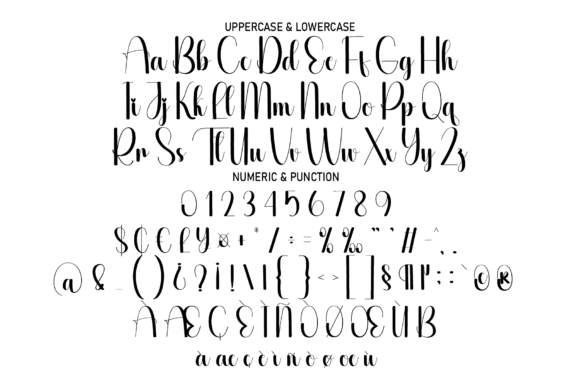 UPPERCASE & LOWERCASE
Aa Bb Cc Dd Ee Ff Gg Hh
Ii Jj Kk Ll Mm Nn Oo Pp Qq
Rr Ss Tt Uu Vv Ww Xx Yy Zz
NUMERIC & PUNCTION
0 1 2 3 4 5 6 7 8 9
$ ₵ € £ ¥ ¤ + * / ÷ = % ‰ " ' # – ^ , .
@ & _ ( ) ¿ ? ¡ ! \ | { } < > [ ] § ¶ : ; ` © ®
À Æ Ç È Ì Ñ Ò Ø Œ Ù ß
à æ ç è ì ñ ò ø œ ù